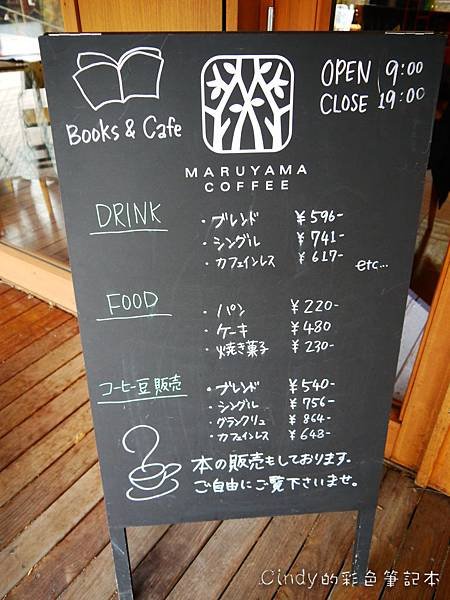 Books & Cafe
MARUYAMA
COFFEE
OPEN 9:00
CLOSE 19:00
DRINK
・ブレンド ¥596-
・シングル ¥741-
・カフェインレス ¥617-
etc...
FOOD
・パン ¥220-
・ケーキ ¥480
・焼き菓子 ¥230-
コーヒー豆販売
・ブレンド ¥540-
・シングル ¥756-
・グランクリュ ¥864-
・カフェインレス ¥648-
本の販売もしております。
ご自由にご覧下さいませ。
Cindy的彩色筆記本